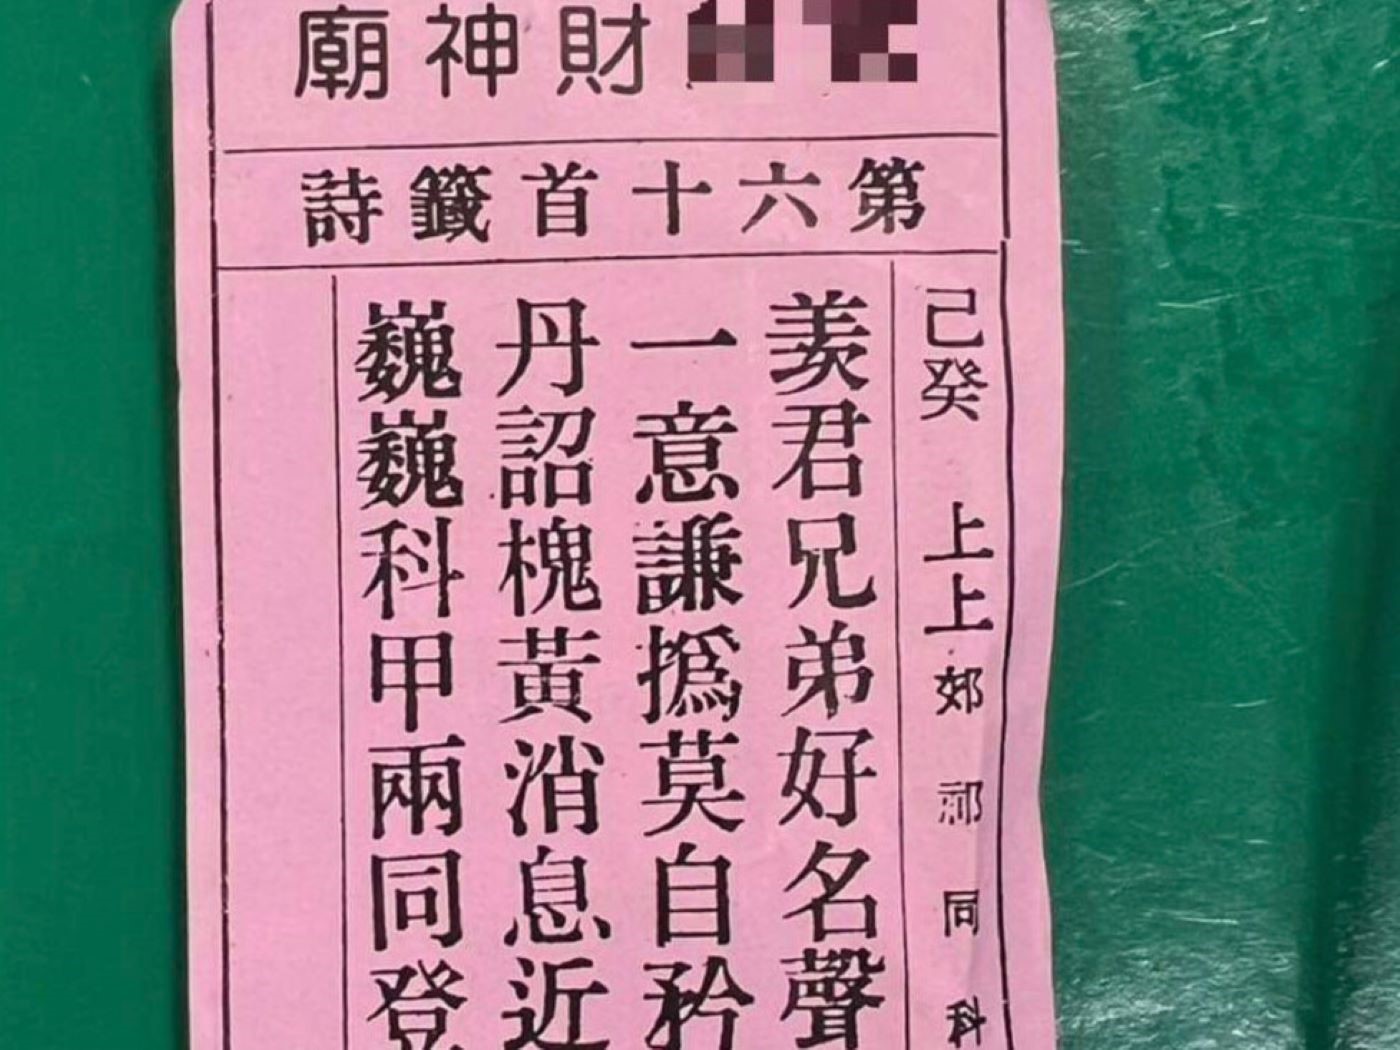 財神廟
第六十首籤詩
己癸 上上 郊祁同科
羨君兄弟好名聲
一意謙撝莫自矜
丹詔槐黃消息近
巍巍科甲兩同登